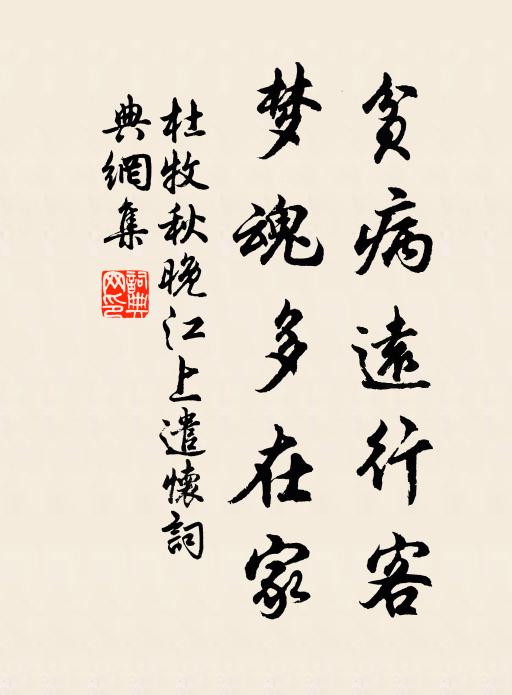 贫病遠行客
梦魂多在家
杜牧秋晚江上遣懷詞
典網集
詞典
网印